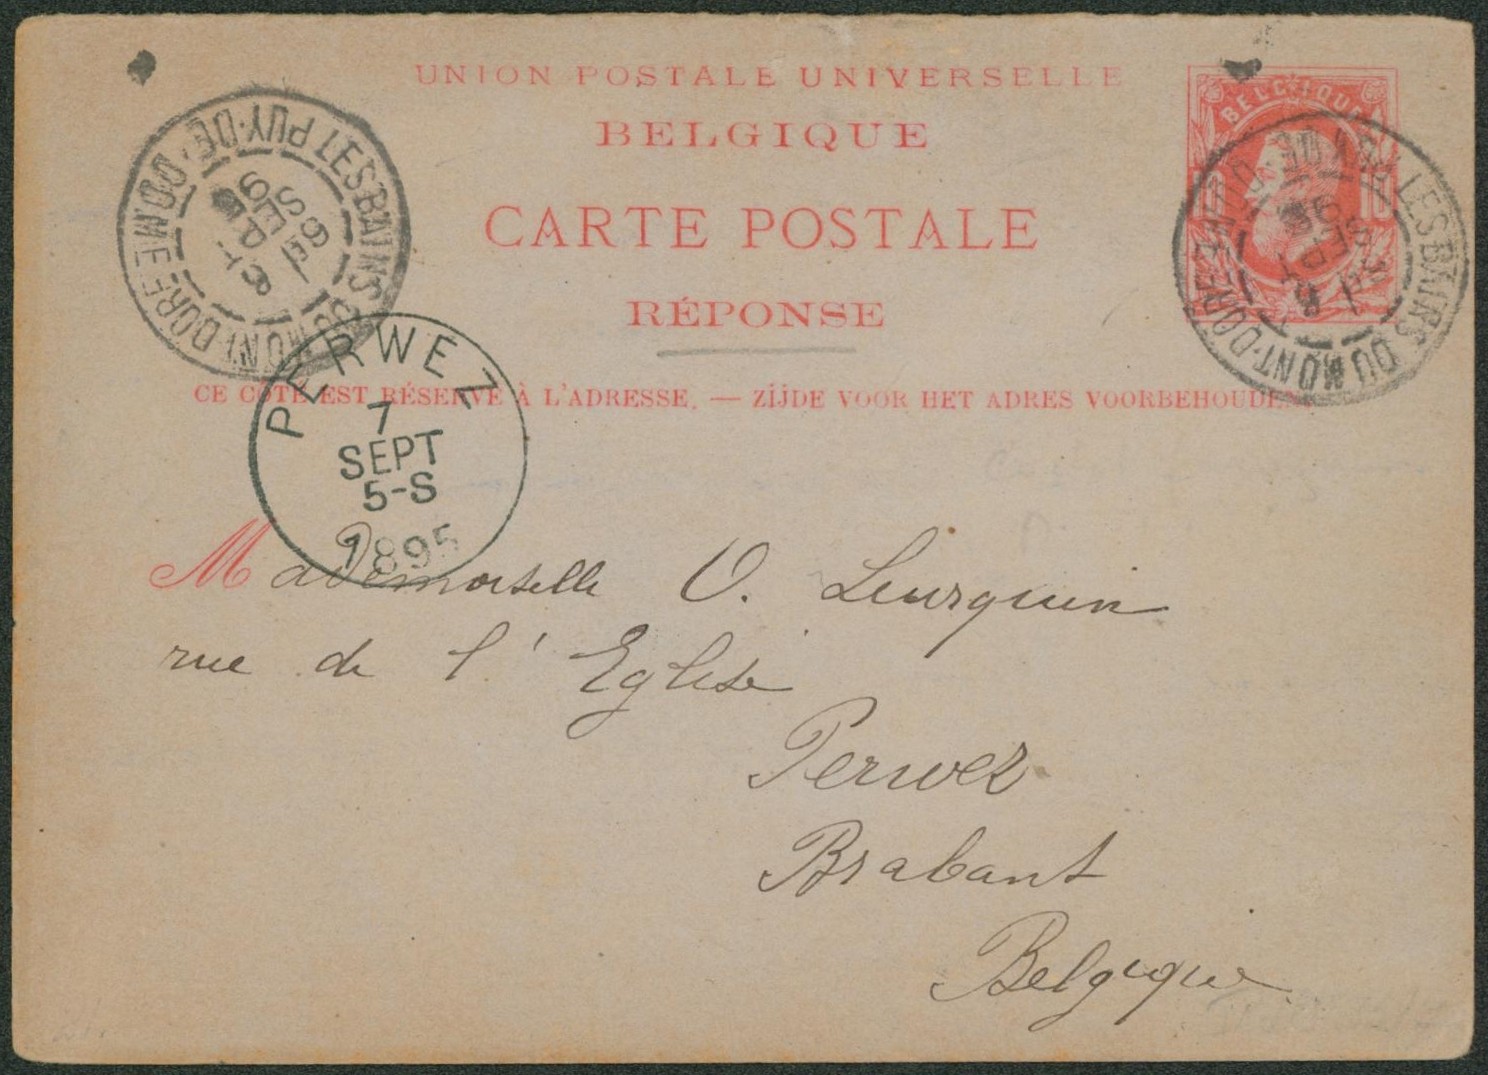 UNION POSTALE UNIVERSELLE
BELGIQUE
CARTE POSTALE
RÉPONSE
CE CÔTÉ EST RÉSERVÉ À L'ADRESSE. — ZIJDE VOOR HET ADRES VOORBEHOUDEN.
BELGIQUE
10
LES BAINS DU MONT-DORE PUY-DE-DOME
SEPT
LES BAINS DU MONT-DORE PUY DE DOME
SEPT
PERWEZ
7
SEPT
5-S
1895
Mademoiselle O. Leurquin
rue de l'Eglise
Perwez
Brabant
Belgique